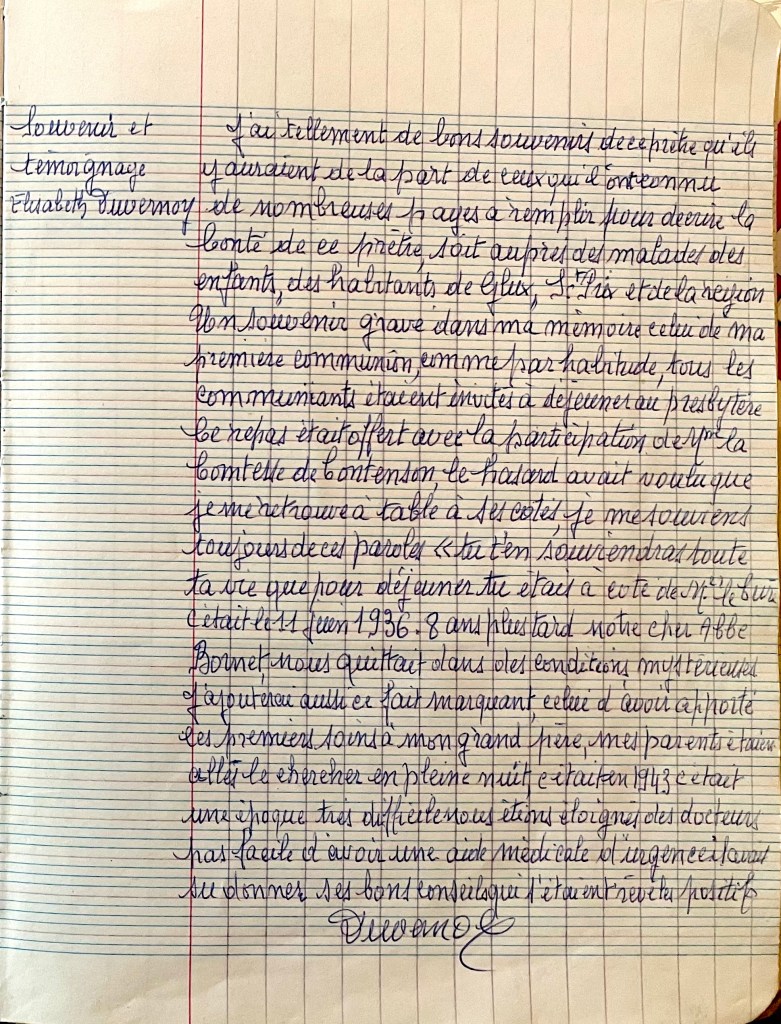 Souvenir et
témoignage
Elisabeth Duvernoy
J'ai tellement de bons souvenirs de ce prêtre qu'ils
y auraient de la part de ceux qui l'ont connu
de nombreuses pages à remplir pour décrire la
bonté de ce prêtre, soit aupres des malades des
enfants, des habitants de Glux, St Prix et de la région
Un souvenir gravé dans ma mémoire celui de ma
première communion, comme par habitude, tous les
communiants étaient invités à déjeuner au presbytère
Ce repas était offert avec la participation de Mme la
Comtesse de Contenson, le hasard avait voulu que
je me retrouve à table à ses cotés, je me souviens
toujours de ces paroles « tu t'en souviendras toute
ta vie que pour déjeuner tu étais à coté de Mr le Curé
c'était le 11 juin 1936. 8 ans plus tard notre cher Abbé
Bornet, nous quittait dans des conditions mystérieuses
J'ajouterai aussi ce fait marquant, celui d'avoir apporté
les premiers soins à mon grand père, mes parents étaient
allés le chercher en pleine nuit, c'était en 1943 c'était
une époque très difficile nous étions éloignés des docteurs
pas facile d'avoir une aide médicale d'urgence il avait
su donner ses bons conseils qui s'étaient révélés positifs